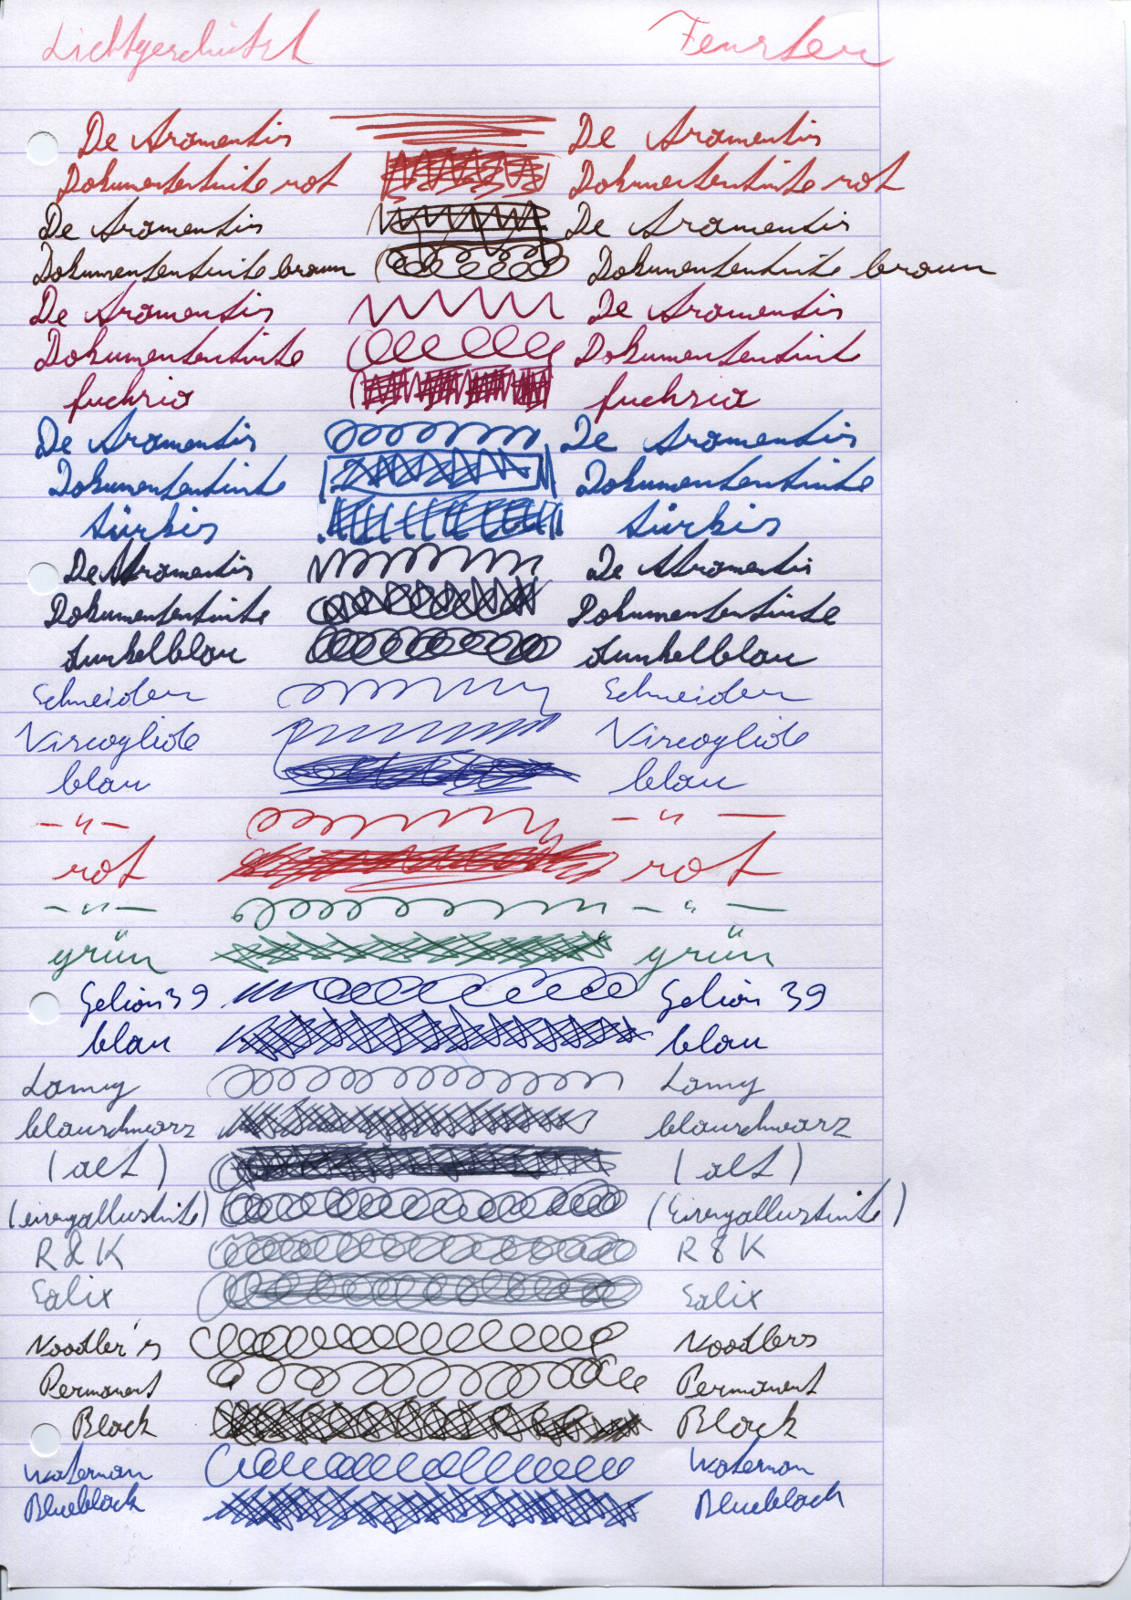 Lichtgeschützt Fenster
De Atramentis De Atramentis
Dokumententinte rot Dokumententinte rot
De Atramentis De Atramentis
Dokumententinte braun Dokumententinte braun
De Atramentis De Atramentis
Dokumententinte Dokumententinte
fuchsia fuchsia
De Atramentis De Atramentis
Dokumententinte Dokumententinte
türkis türkis
De Atramentis De Atramentis
Dokumententinte Dokumententinte
dunkelblau dunkelblau
Schneider Schneider
Viscoglide Viscoglide
blau blau
—"— —"—
rot rot
—"— —"—
grün grün
Gelion 39 Gelion 39
blau blau
Lamy Lamy
blauschwarz blauschwarz
(alt) (alt)
(eisengallustinte) (Eisengallustinte)
R & K R & K
Salix Salix
Noodler's Noodlers
Permanent Permanent
Black Black
Waterman Waterman
Blueblack Blueblack